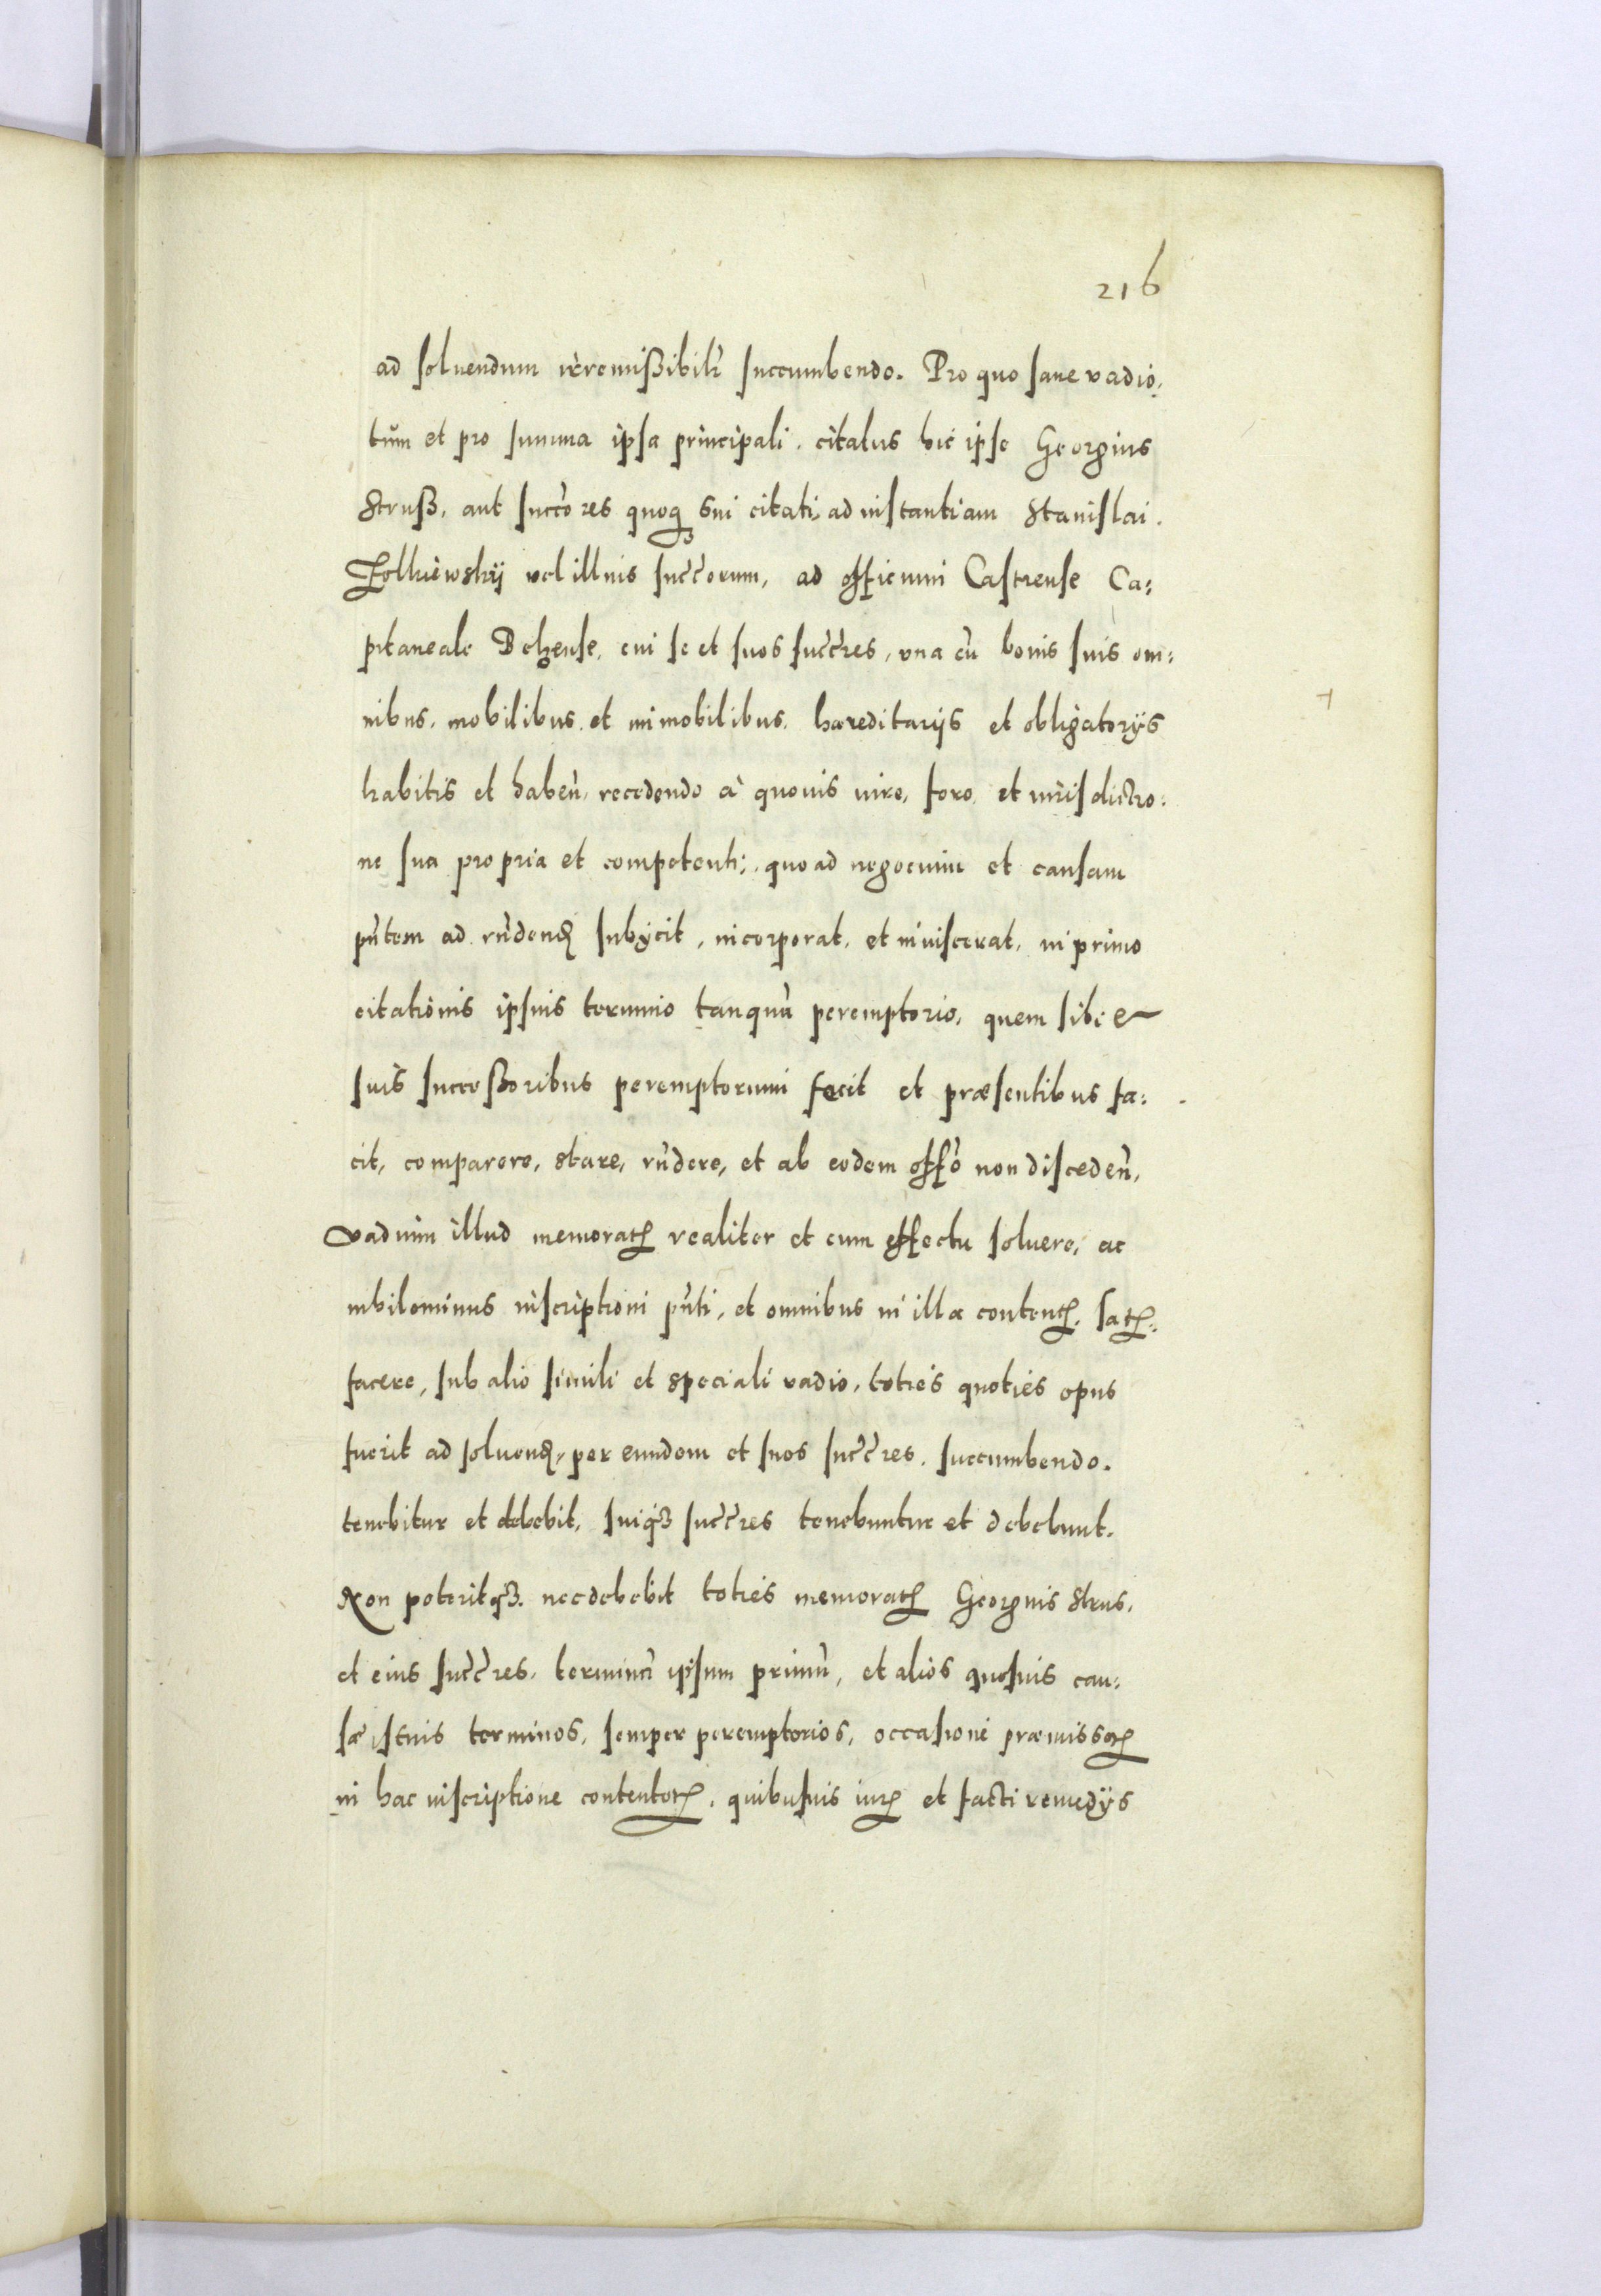 216
ad soluendum irremißibilr̃ succumbendo. Pro quo sane vadio,
tùm et pro summa ipsa principali. citatus hic ipse Georgius
Struß, aut succ̃ores quoq sui citati, ad instantiam Stanislai.
Zolkiewskÿ vel illius succ̃orum, ad officium Castrense Ca:
pitaneale Belzense, cui se et suos succ̃res, vna cũ bonis suis om:
nibus, mobilibus et immobilibus, hæreditarijs et obligatorÿs
habitis et habeñ, recedendo à quouis iure, foro, et iurisdictio:
ne sua propria et competenti, quoad negocium et causam
pñtem ad rñdend̃ subÿcit, incorporat, et inuiscerat, in primo
citationis ipsius termino tanquã peremptorio, quem sibi &
suis succeßoribus peremptorium fecit et præsentibus fa:
cit, comparere, stare, rñdere, et ab eodem offõ non disceden̄,
vadium illud memoratꝭ realiter et cum effectu soluere, ac
nihilominus inscriptioni pñti, et omnibus in illa contentꝭ, satꝭ:
facere, sub alio simili et speciali vadio, toties quoties opus
fuerit ad soluend̃, per eundem et suos succ̃res, succumbendo.
tenebitur et debebit, suiqꝫ succ̃res tenebuntur et debebunt.
Non poteritqꝫ. nec debebit toties memoratꝭ Georgius Strus,
et eius succ̃res, terminũ ipsum primũ, et alios quosuis cau:
sæ istius terminos, semper peremptorios, occasione præmissoꝝ
in hac inscriptione contentoꝝ, quibusuis iurꝭ et facti remedÿs